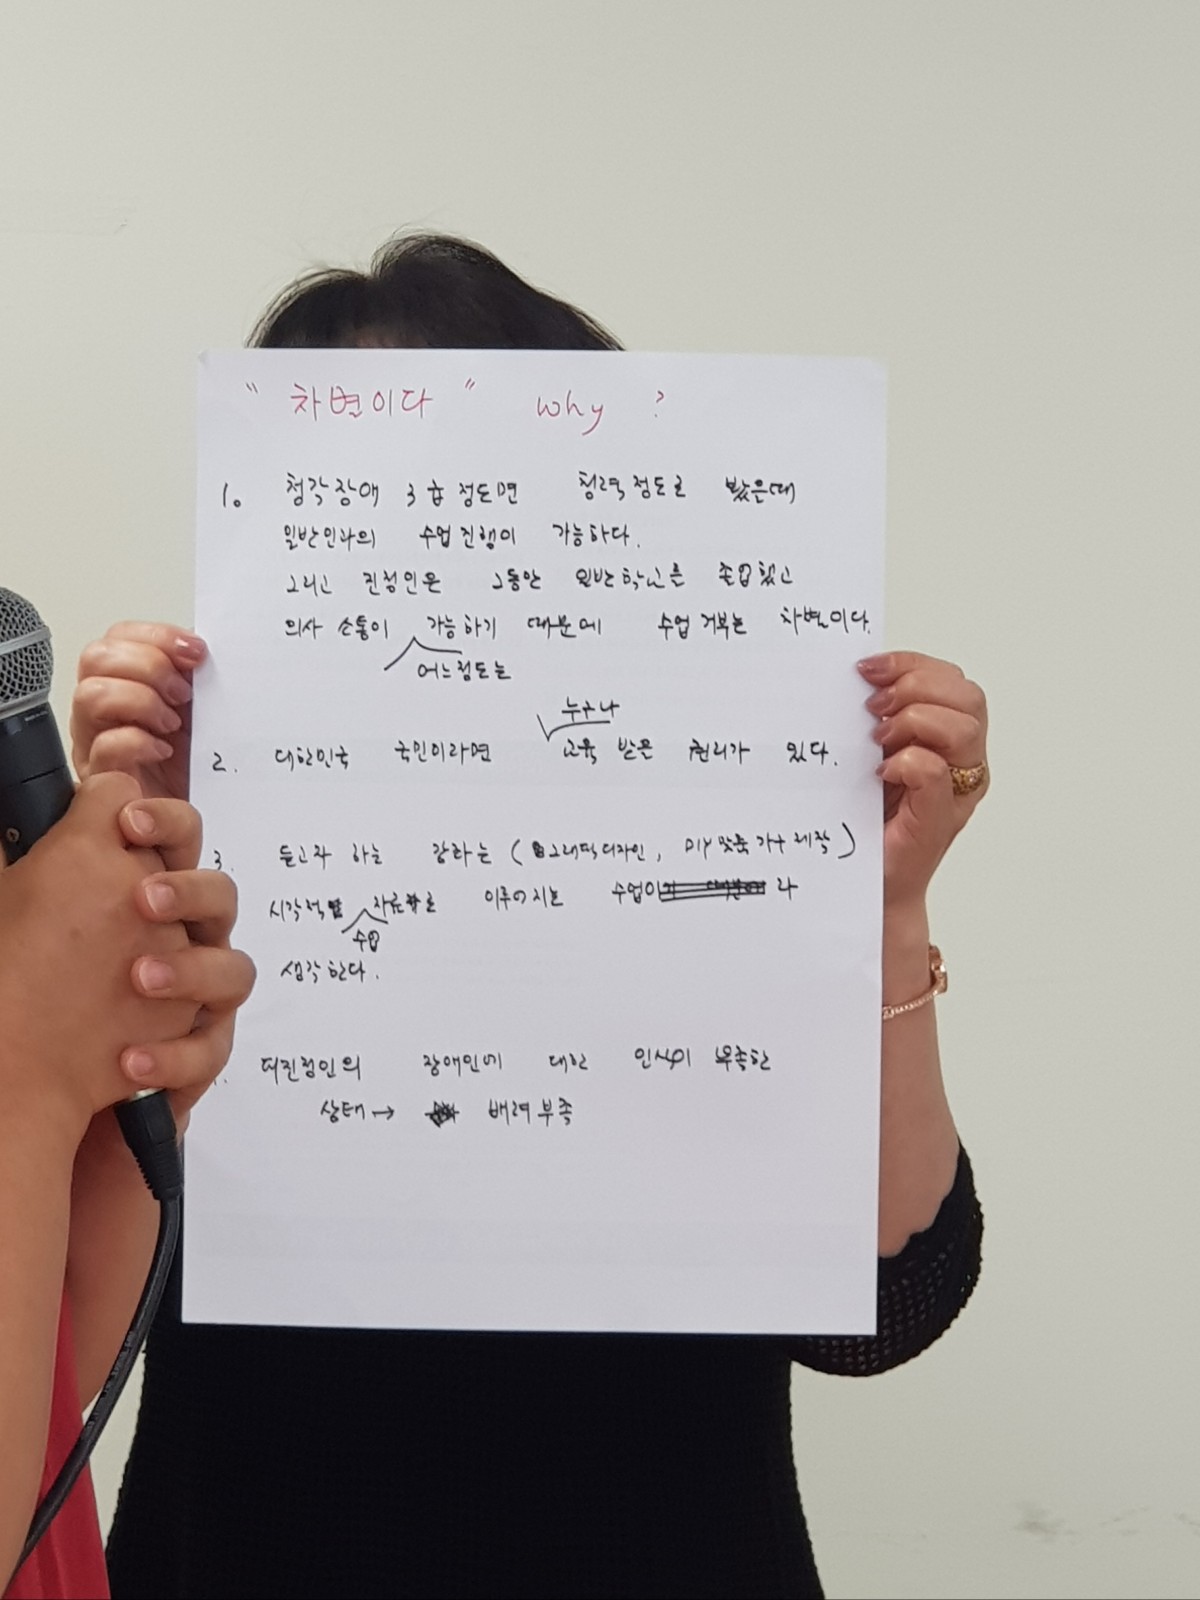 "차별이다" why?
1. 청각장애 3급정도면 청력정도로 봤을때
일반인과의 수업진행이 가능하다.
그리고 진정인은 그동안 일반학교를 졸업했고
의사소통이 가능하기 때문에 수업거부는 차별이다.
어느정도는
누구나
2. 대한민국 국민이라면 교육 받을 권리가 있다.
3. 듣고자 하는 강좌는 (그래픽디자인, DIY맞춤가구제작)
시각적 자료로 이루어지는 수업이 라
수업
생각한다.
피진정인의 장애인에 대한 인식이 부족한
상태→ 배려부족